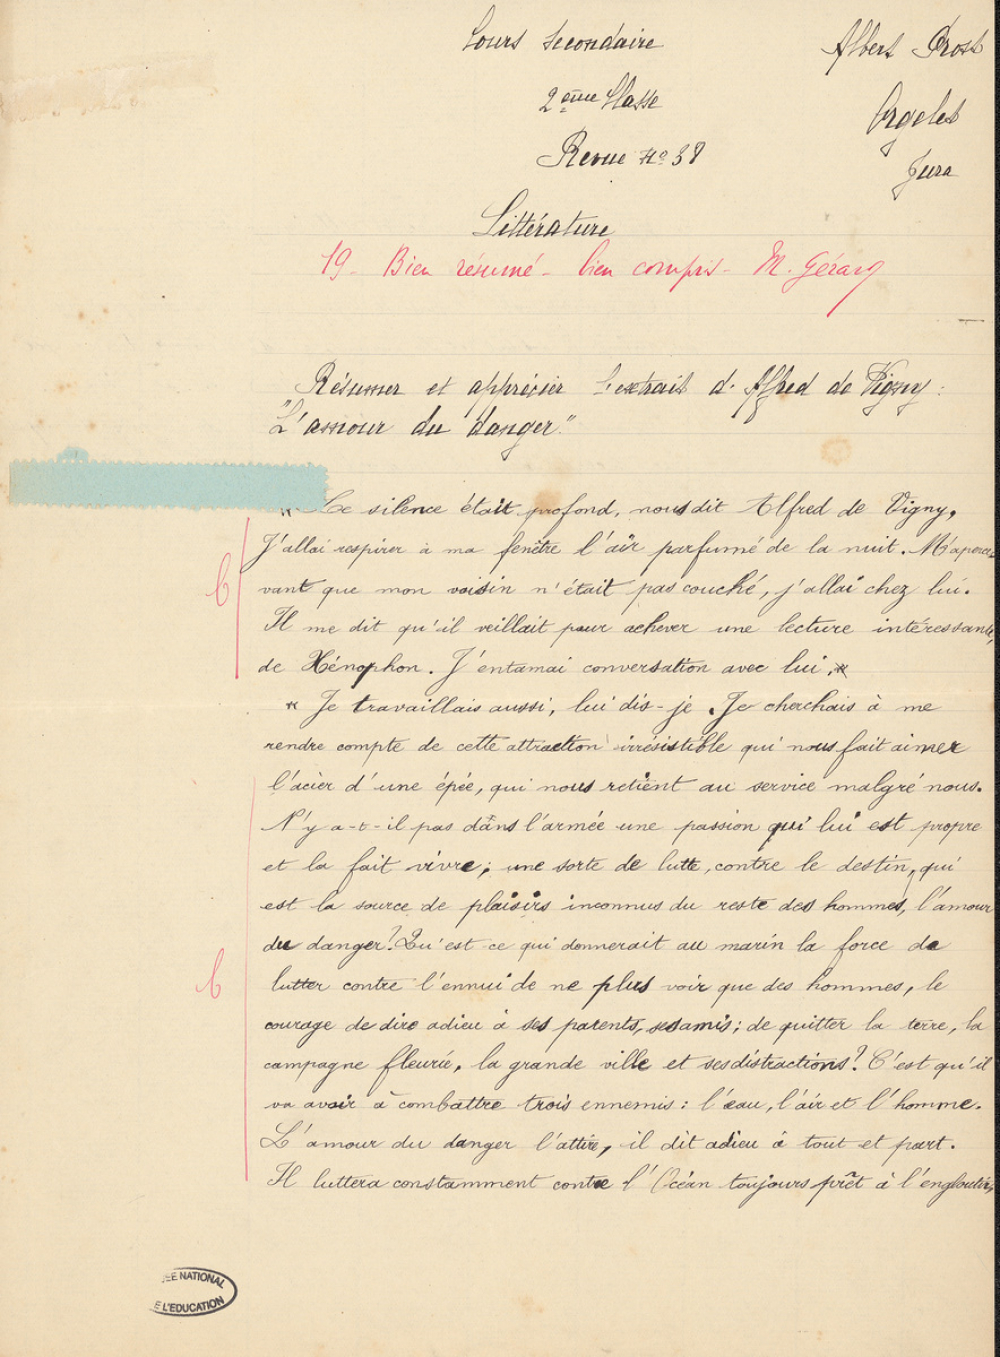 Cours Secondaire
Albert Prost
2ème Classe
Orgelet
Revue No 38
Jura
Littérature
19 - Bien résumé - bien compris - M. Gérard
Résumer et apprécier L'extrait d'Alfred de Vigny :
"L'amour du danger."
"Le silence était profond, nous dit Alfred de Vigny,
J'allai respirer à ma fenêtre l'air parfumé de la nuit. M'aperce-
vant que mon voisin n'était pas couché, j'allai chez lui.
Il me dit qu'il veillait pour achever une lecture intéressante,
de Xénophon. J'entamai conversation avec lui."
"Je travaillais aussi, lui dis-je. Je cherchais à me
rendre compte de cette attraction irrésistible qui nous fait aimer
l'acier d'une épée, qui nous retient au service malgré nous.
N'y a-t-il pas dans l'armée une passion qui lui est propre
et la fait vivre ; une sorte de lutte, contre le destin, qui
est la source de plaisirs inconnus du reste des hommes, l'amour
du danger? Qu'est ce qui donnerait au marin la force de
lutter contre l'ennui de ne plus voir que des hommes, le
courage de dire adieu à ses parents, ses amis ; de quitter la terre, la
campagne fleurie, la grande ville et ses distractions? C'est qu'il
va avoir à combattre trois ennemis : l'eau, l'air et l'homme.
L'amour du danger l'attire, il dit adieu à tout et part.
Il luttera constamment contre l'Océan toujours prêt à l'engloutir,
b
b
ÉE NATIONAL
E L'EDUCATION